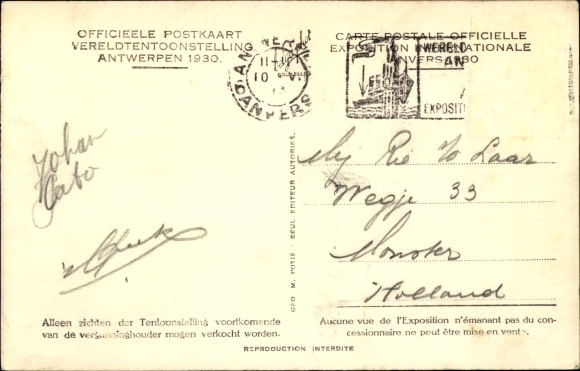 OFFICIEELE POSTKAART
VERELDTENTOONSTELLING
ANTWERPEN 1930.
CARTE POSTALE OFFICIELLE
EXPOSITION INTERNATIONALE
ANVERS 1930
ANTWERPEN
11-
10 V
ANVERS
WERELD
AN
EXPOSITI
Johan
Cato
Mej Rie 
Laar
Wegje 33
Monster
Holland
GEO M. POTIÉ - SEUL EDITEUR AUTORISÉ.
Alleen zichten der Tentoonstelling voortkomende
van de vergunninghouder mogen verkocht worden.
Aucune vue de l'Exposition n'émanant pas du con-
cessionnaire ne peut être mise en vente.
REPRODUCTION INTERDITE